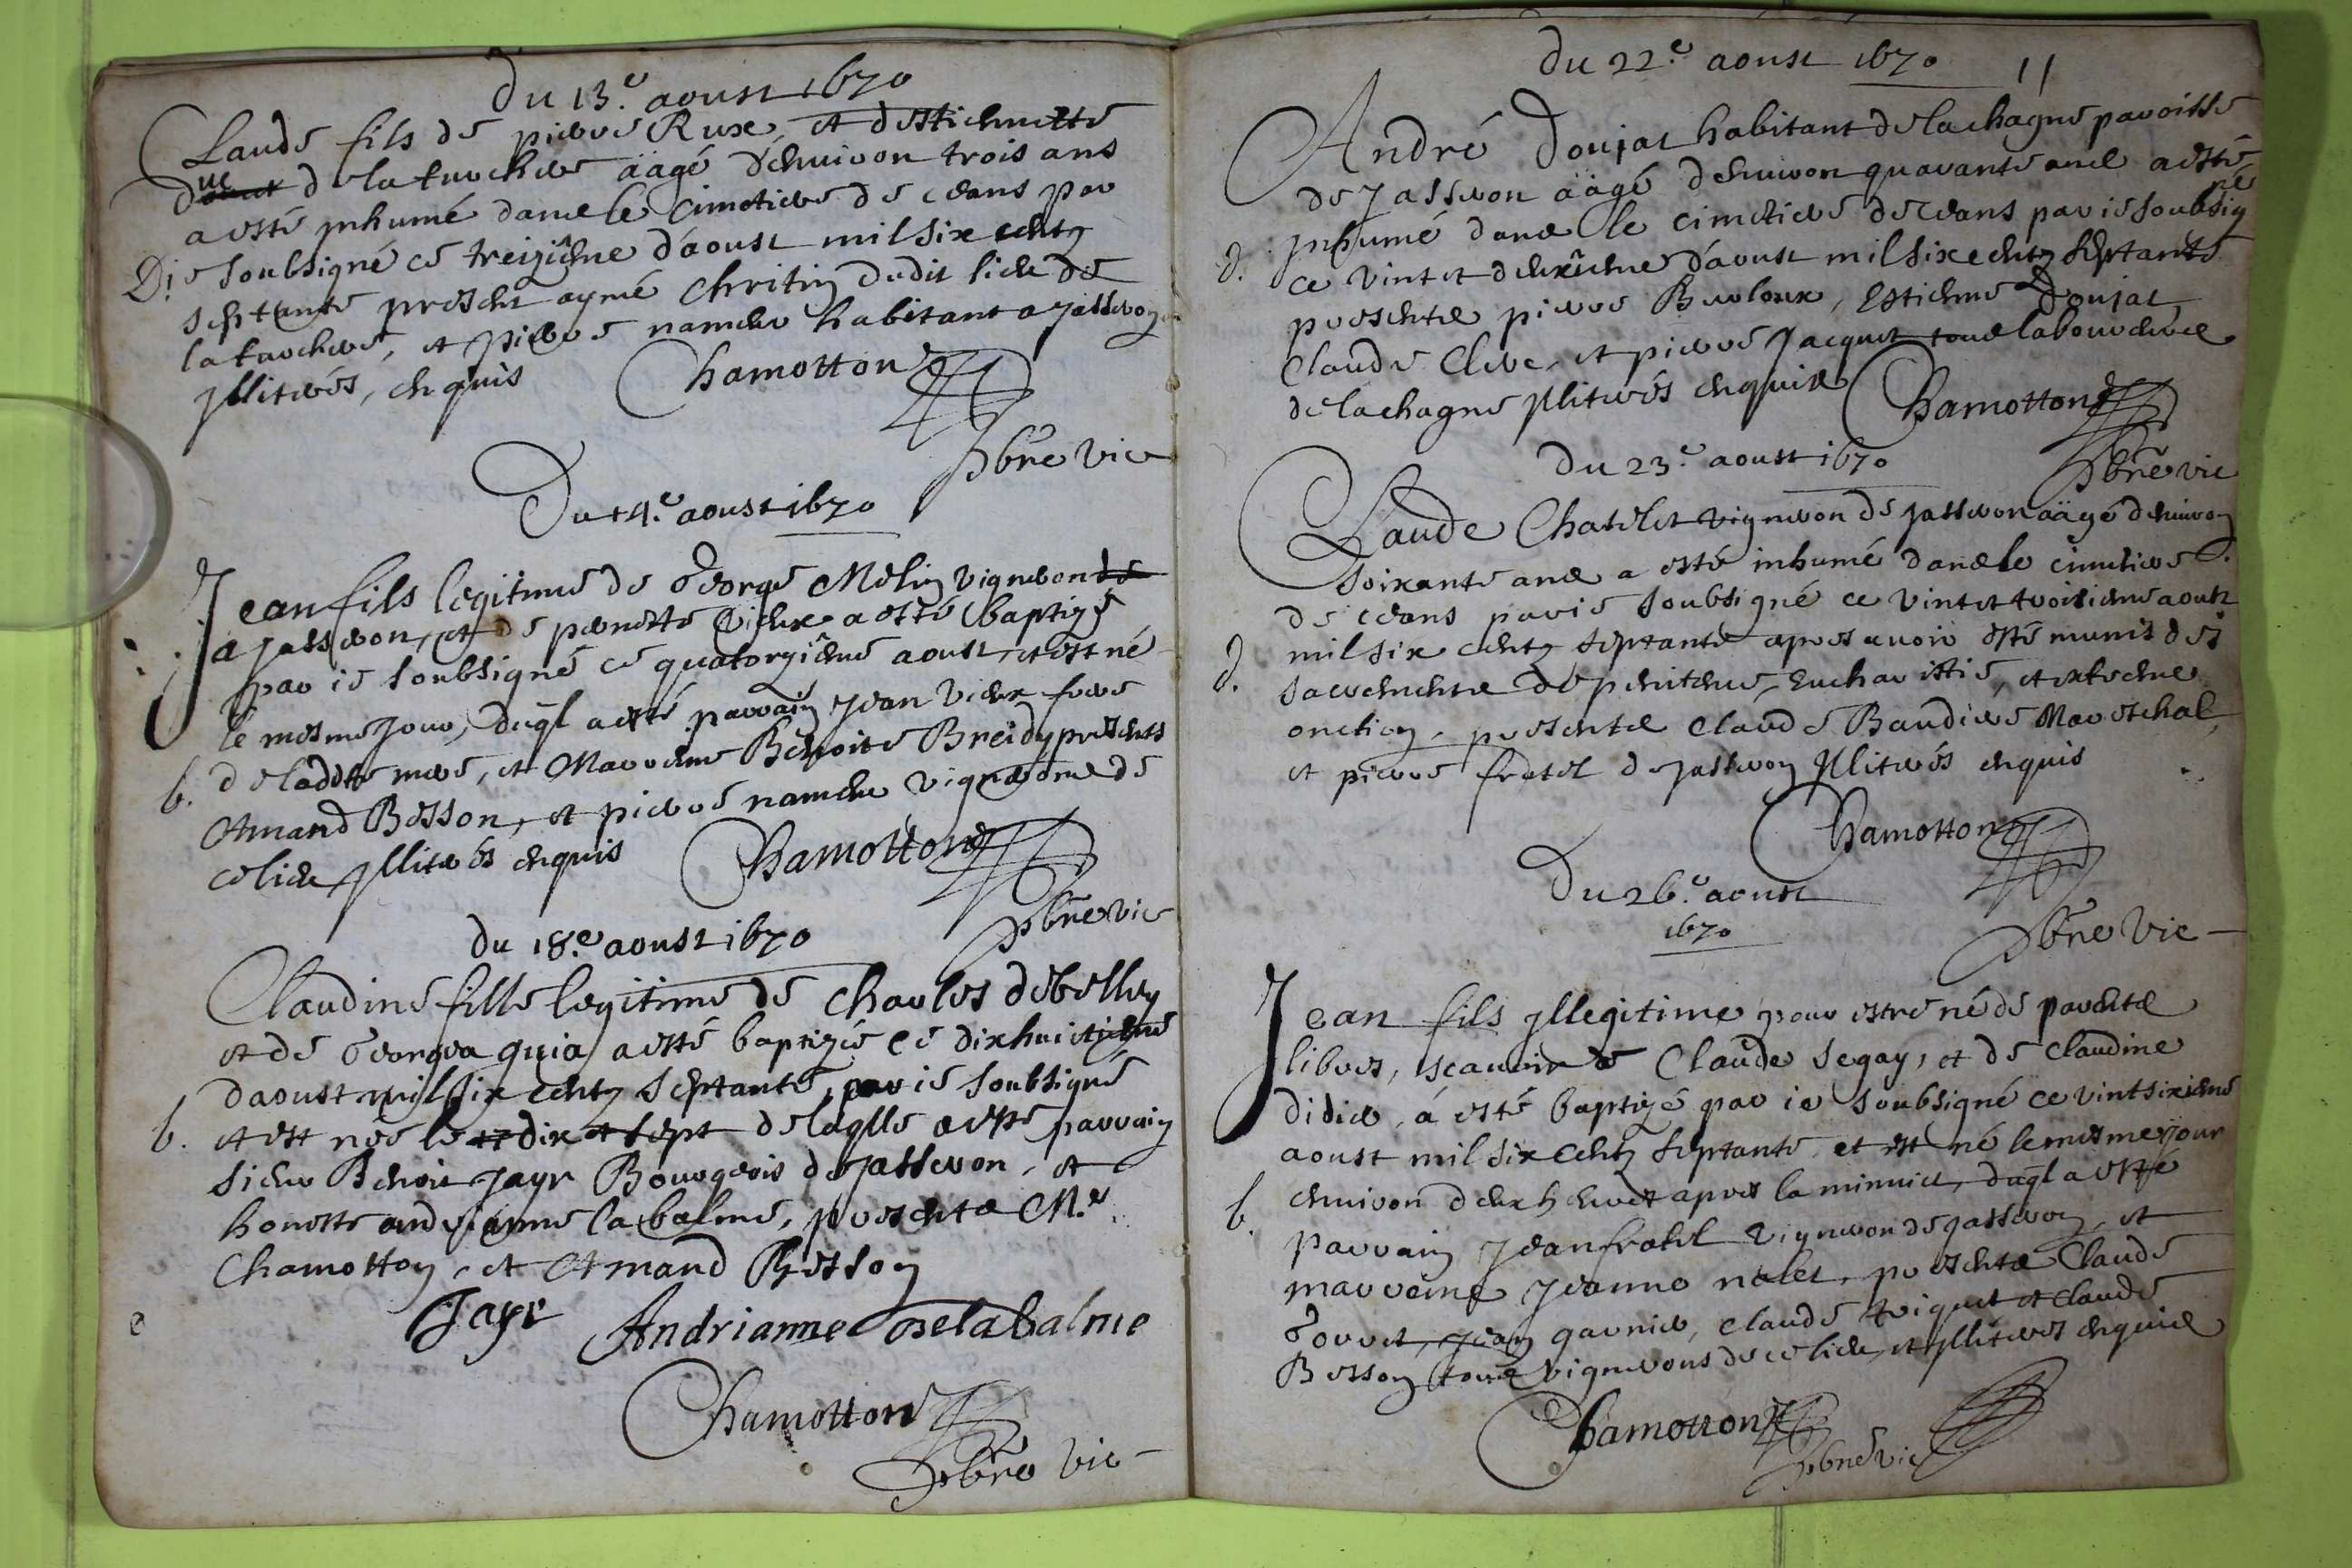 Du 13.e aoust 1670
Claude fils de pierre Rux, et d'estiennette
Duc de la turchere äagé d'enuiron trois ans
a esté jnhumé dans le cimetiere de ceans par
D. ie soubsigné ce treiziéme d'aoust mil six centz
septante present aymé Chritin dudit lieu de
la turchere, et pierre nameur habitant a jasseron
jllitérés, enquis Chamotton
pbre vic
Du 14.e aoust 1670
Jean fils legitime de George Melin vigneron de
a jasseron, et de pernette vieux a esté baptizé
par ie soubsigné ce quatorziéme aoust, et est né
le mesme jour, duql a esté parrain jean vieux frere
b. de ladite mere, et Marreine Benoite Breidy presents
Amand Besson, et pierre nameur vignerons de
ce lieu jllitérés enquis Chamotton
pbre vic
du 18.e aoust 1670
Claudine fille legitime de Charles debelley
et de Georgea quia a esté baptizée ce dixhuictiéme
d'aoust mil six centz septante, par ie soubsigné
b. et est née le dix et sept de laqlle a esté parrain
sieur Benoit jayr Bourgeois de jasseron, et
honeste andrianne la balme, presents M.r
Chamotton, et Amand Besson
Jayr Andrianne Delabalme
Chamotton
pbre vic
Du 22.e aoust 1670 11
André Doujat habitant de la chagne paroisse
de jasseron äagé d'enuiron quarante ans a esté
jnhumé dans le cimetiere de ceans par ie soubsigné
d. ce vint et deuxiéme d'aoust mil six centz septante
presents pierre Burloux, Estienne Doujat
Claude Clerc, et pierre Jacquet tous laboureurs
de la chagne jllitérés enquis Chamotton
pbre vic
Du 23.e aoust 1670
Claude Chatelet vigneron de jasseron äagé d'enuiron
soixante ans a esté inhumé dans le cimetiere
de ceans par ie soubsigné ce vint et troisieme aoust
d. mil six centz septante apres auoir esté munis des
sacremens de penitence, Eucharistie, et extreme
onction, presents Claude Baudier Mareschal,
et pierre fratel de jasseron jllitérés enquis
Chamotton
pbre vic
Du 26.e aoust
1670
Jean fils jllegitime pour estre né de parents
libres, scauoir de Claude segay, et de Claudine
didier, á esté baptizé par ie soubsigné ce vint sixieme
aoust mil six centz septante, et est né le mesme jour
b. enuiron deux heures apres la minuict, duql a esté
parrain jean fratel vigneron de jasseron, et
marreine jeanne nalet, presents Claude
Gorret, jean garnier, Claude triquet et Claude
Besson tous vignerons de ce lieu, et jllitérés enquis
Chamotton
pbre vic